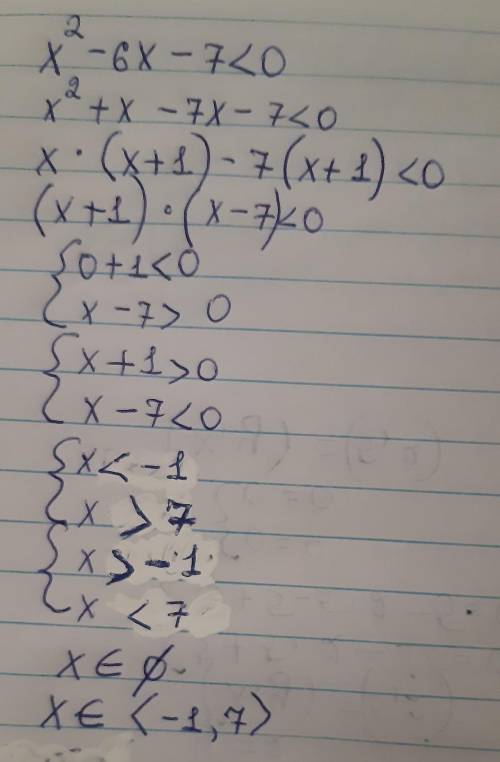 x² - 6x - 7 < 0
x² + x - 7x - 7 < 0
x · (x + 1) - 7 (x + 1) < 0
(x + 1) · (x - 7) < 0
{ 0 + 1 < 0
x - 7 > 0
{ x + 1 > 0
x - 7 < 0
{ x < -1
x > 7
{ x > -1
x < 7
x ∈ ∅
x ∈ ⟨-1, 7⟩